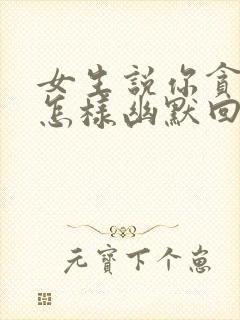 女生説你貪
怎樣幽默回
元寶下个崽